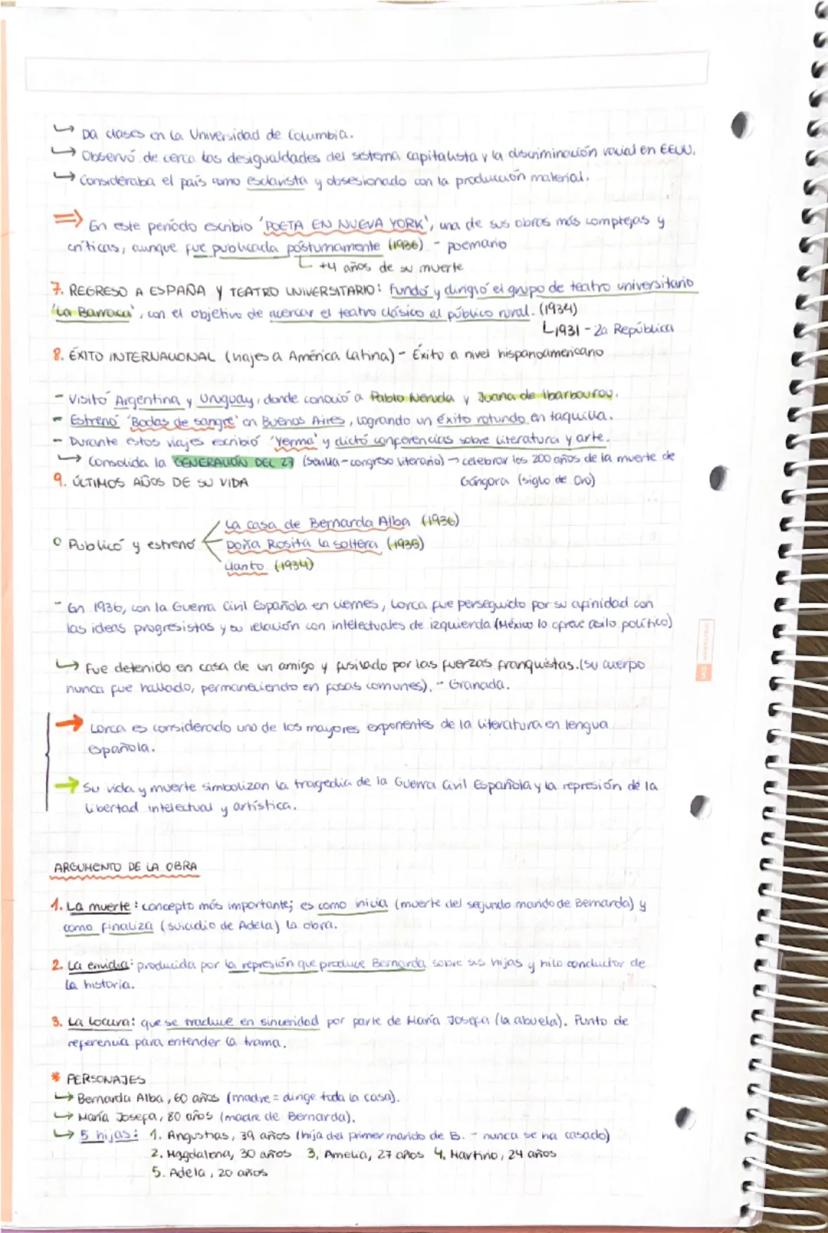 ↳ Da clases en la Universidad de Columbia.
↳ Observó de cerca las desigualdades del sistema capitalista y la discriminación racial en EEUU.
↳ Consideraba el país como esclavista y obsesionado con la producción material.
⇒ En este periodo escribio 'POETA EN NUEVA YORK', una de sus obras más complejas y
críticas, aunque fue publicada póstumamente (1936) - poemario
↳ +4 años de su muerte
7. REGRESO A ESPAÑA Y TEATRO UNIVERSITARIO: Fundó y dirigió el grupo de teatro universitario
'La Barraca', con el objetivo de acercar el teatro clásico al público rural. (1934)
↳1931 - 2a República
8. ÉXITO INTERNACIONAL (viajes a América Latina) - Éxito a nivel hispanoamericano
- Visitó Argentina y Uruguay, donde conoció a Pablo Neruda y Juana de Ibarbourou.
- Estrenó 'Bodas de sangre' en Buenos Aires, logrando un éxito rotundo en taquilla.
- Durante estos viajes escribió 'Yerma' y dictó conferencias sobre literatura y arte.
↳ Consolida la GENERACIÓN DEL 27 (Sevilla-congreso literario) → celebrar los 200 años de la muerte de
9. ÚLTIMOS AÑOS DE SU VIDA Góngora (siglo de Oro)
La casa de Bernarda Alba (1936)
○ Publicó y estrenó Doña Rosita la soltera (1935)
Llanto (1934)
- En 1936, con la Guerra Civil Española en ciernes, Lorca fue perseguido por su afinidad con
las ideas progresistas y su relación con intelectuales de izquierda (México lo ofrece asilo político)
↳ Fue detenido en casa de un amigo y fusilado por las fuerzas franquistas. (su cuerpo
nunca fue hallado, permaneciendo en fosas comunes). - Granada.
→ Lorca es considerado uno de los mayores exponentes de la literatura en lengua
española.
→ Su vida y muerte simbolizan la tragedia de la Guerra Civil Española y la represión de la
libertad intelectual y artística.
ARGUMENTO DE LA OBRA
1. La muerte: concepto más importante; es como inicia (muerte del segundo marido de Bernarda) y
como finaliza (suicidio de Adela) la obra.
2. La envidia: producida por la represión que produce Bernarda sobre sus hijas y hilo conductor de
la historia.
3. La locura: que se traduce en sinceridad por parte de María Josefa (la abuela). Punto de
referencia para entender la trama.
* PERSONAJES
↳ Bernarda Alba, 60 años (madre = dirige toda la casa).
↳ María Josefa, 80 años (madre de Bernarda).
↳ 5 hijas: 1. Angustias, 39 años (hija del primer marido de B. - nunca se ha casado)
2. Magdalena, 30 años 3. Amelia, 27 años 4. Martirio, 24 años
5. Adela, 20 años